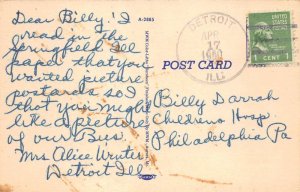 Dear Billy: I
read in the
Springfield, Ill
paper that you
wanted picture
postcards so I
that you might
like a picture
of our Bus.
Mrs Alice Winter
Detroit Ill
A-2885
POST CARD
DETROIT
APR
17
ILL.
1 CENT 1
Billy Darrah
Childrens Hosp
Philadelphia Pa